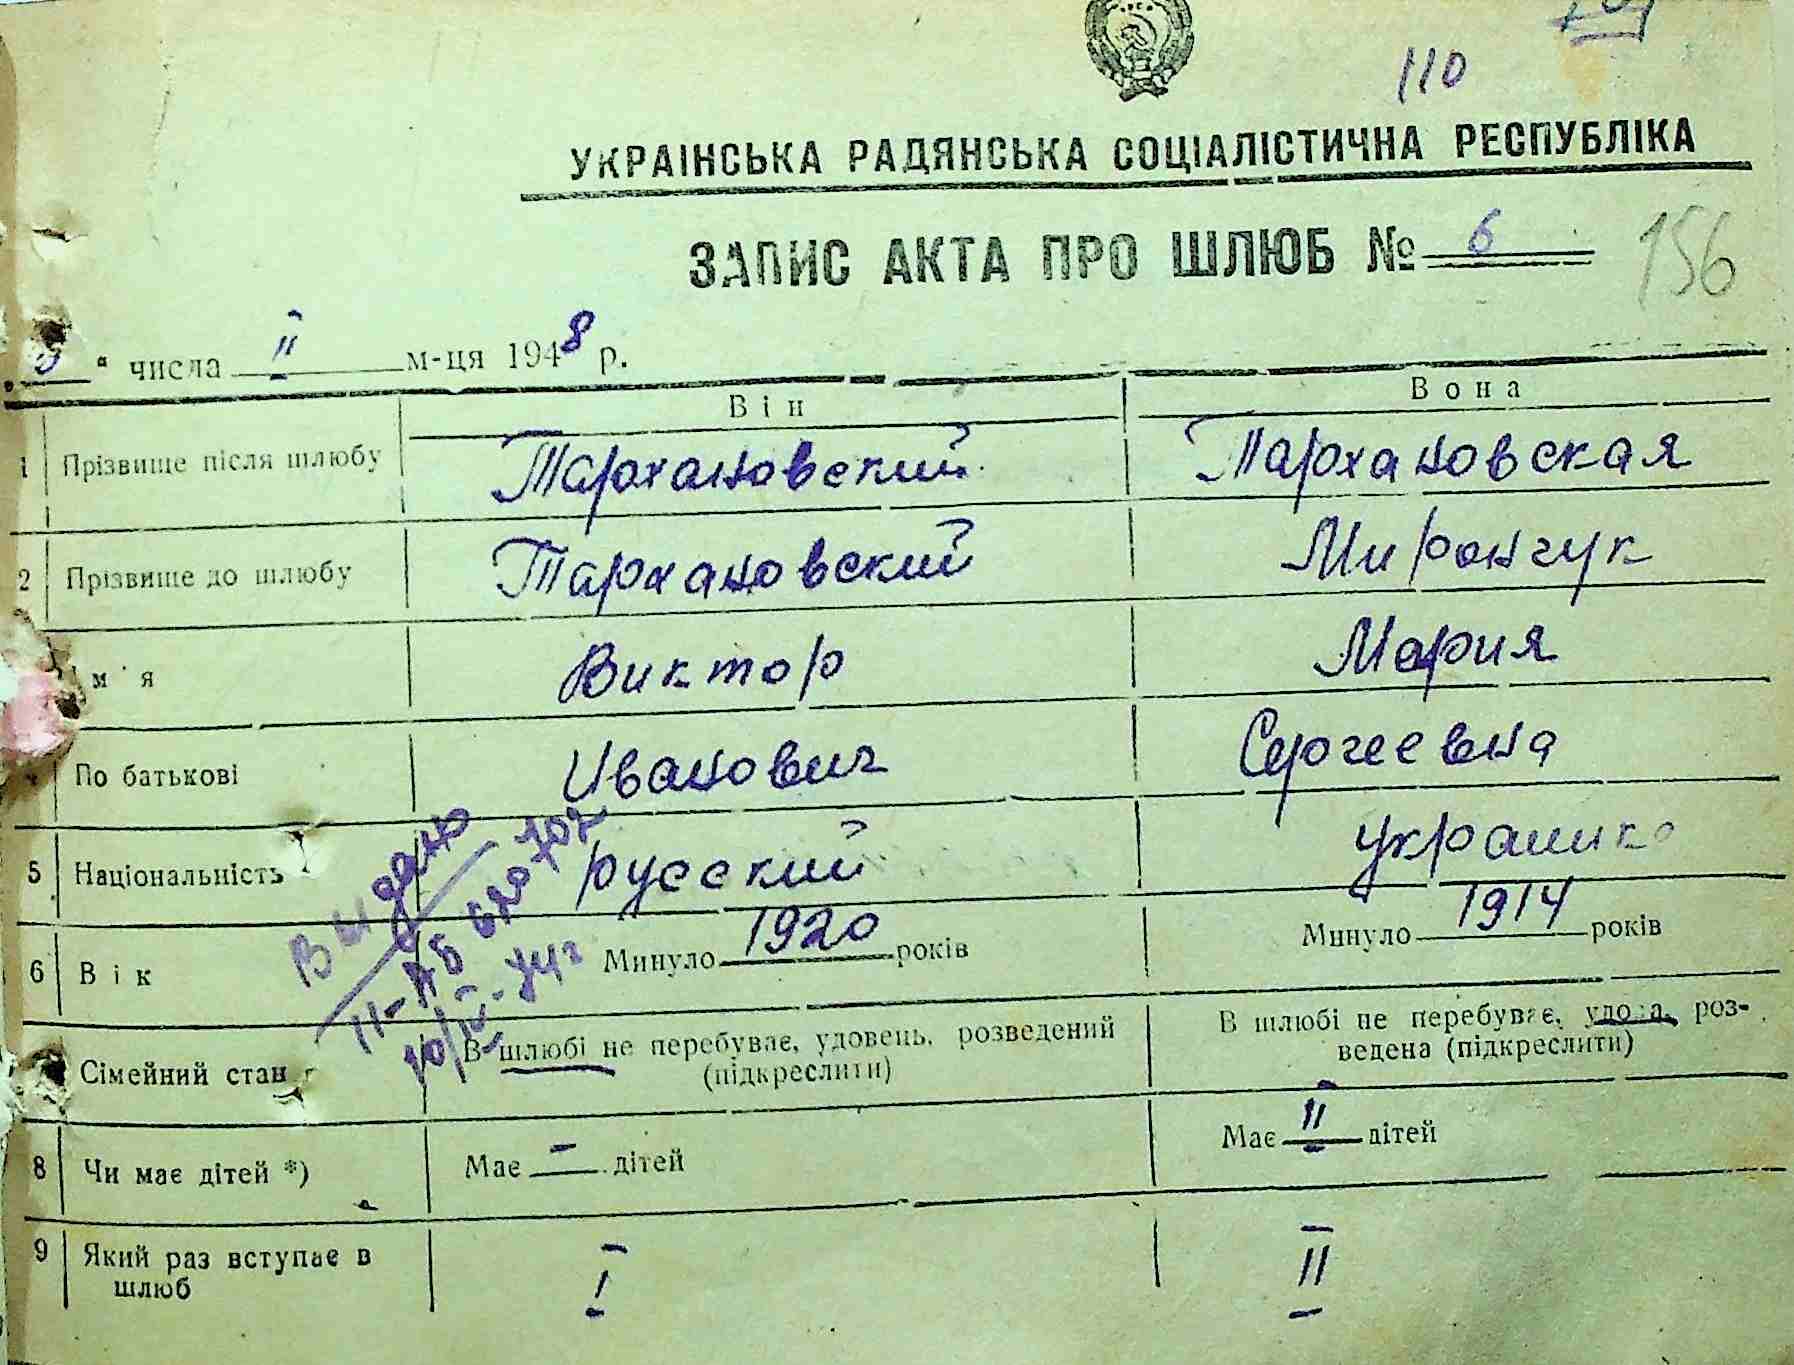 110
УКРАІНСЬКА РАДЯНСЬКА СОЦІАЛІСТИЧНА РЕСПУБЛІКА
ЗАПИС АКТА ПРО ШЛЮБ № 6
156
" числа II м-ця 1948 р.
Він Вона
1 Прізвище після шлюбу Тархановский Тархановская
2 Прізвище до шлюбу Тархановский Мирончук
м'я Виктор Мария
4 По батькові Иванович Сергеевна
5 Національність русский украинка
6 Вік Минуло 1920 років Минуло 1914 років
Видано
II-АБ
Сімейний стан В шлюбі не перебуває, удовець, розведений (підкреслити) В шлюбі не перебуває, удова, роз-
ведена (підкреслити)
8 Чи має дітей *) Має — дітей Має II дітей
9 Який раз вступає в шлюб I II